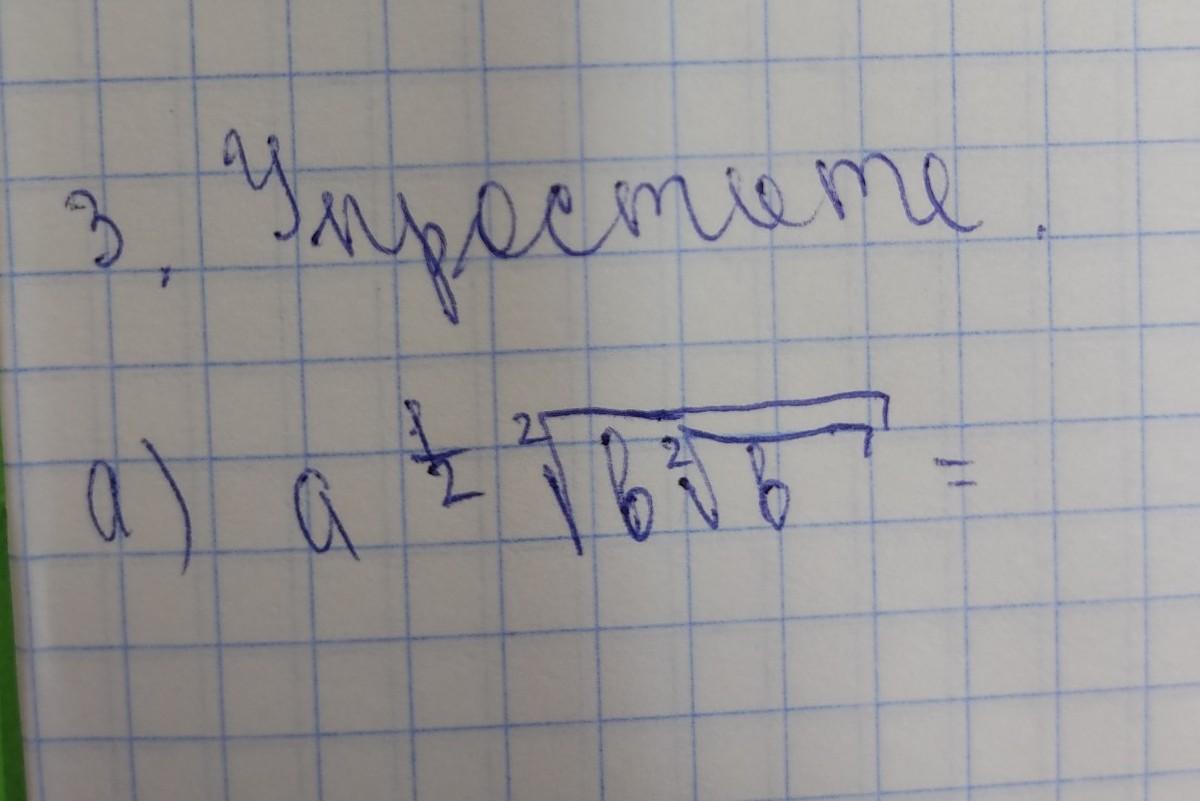 3. Упростите.
а) a^{\frac{1}{2}} \sqrt[2]{b\sqrt[2]{b}} =